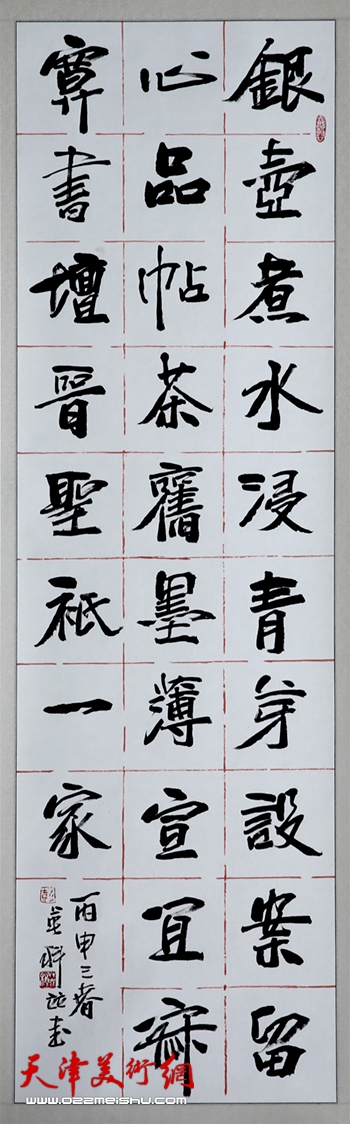 銀壺煮水浸青芽設案留
心品帖茶舊墨薄宣宜
書壇晉聖祇一家
丙申三春
天津美術網
www.022meishu.com